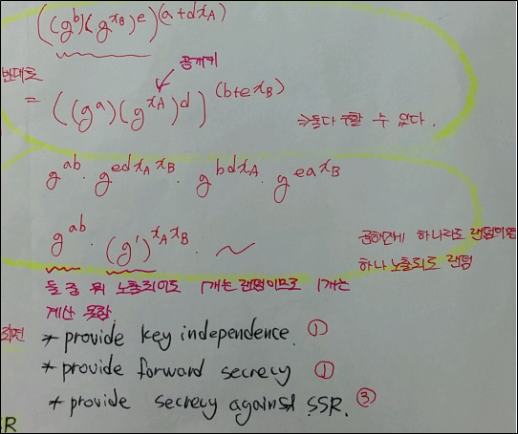 ((g^b)(g^{x_B})^e)^{(a+dx_A)}
반대로 공개키
= ((g^a)(g^{x_A})^d)^{(b+ex_B)} ⇒둘다 구할 수 있다.
g^{ab} · g^{edx_Ax_B} · g^{bdx_A} · g^{eax_B}
g^{ab} · (g')^{x_Ax_B} · ~ 곱해진게 하나라도 랜덤이면
하나 노출되도 랜덤
둘 중 뭐 노출되어도 1개는 랜덤이므로 1개는
계산 못함
* provide key independence. ①
* provide forward secrecy ①
* provide secrecy against SSR. ③
R